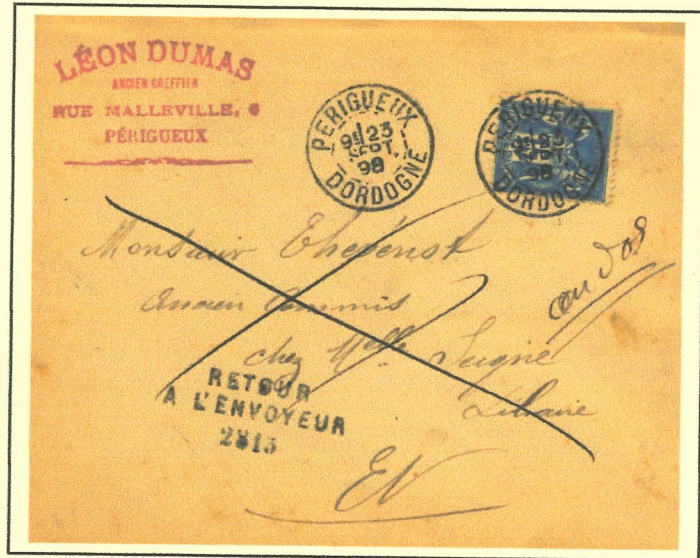 LÉON DUMAS
ANCIEN GREFFIER
RUE MALLEVILLE, 6
PÉRIGUEUX
PERIGUEUX
9E 23
SEPT.
98
DORDOGNE
PERIGUEUX
9E 23
SEPT.
98
DORDOGNE
Monsieur Thevenot
ancien Commis
chez Melle Seigne
Libraire
EV
au dos
RETOUR
A L'ENVOYEUR
2815